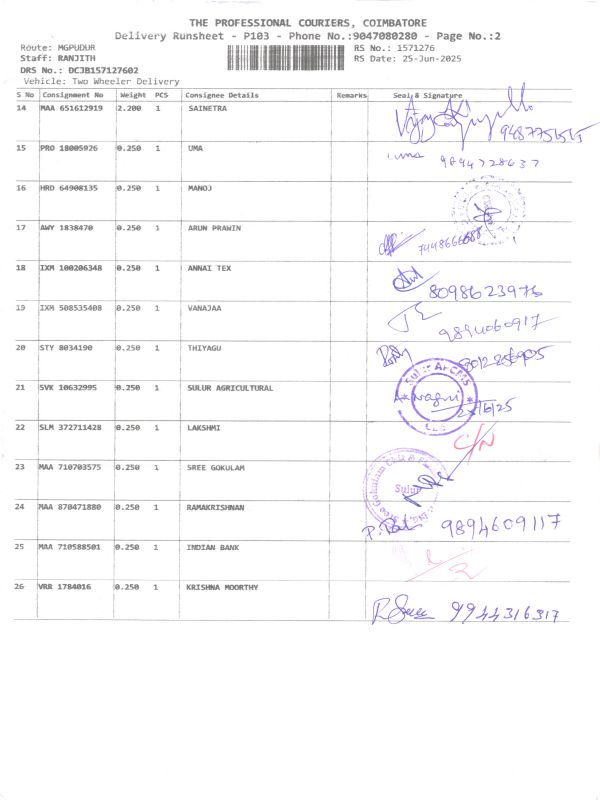 THE PROFESSIONAL COURIERS, COIMBATORE
Delivery Runsheet - P103 - Phone No.:9047080280 - Page No.:2
Route: MGPUDUR RS No.: 1571276
Staff: RANJITH RS Date: 25-Jun-2025
DRS No.: DCJB157127602
Vehicle: Two Wheeler Delivery
S No Consignment No Weight PCS Consignee Details Remarks Seal & Signature
14 MAA 651612919 2.200 1 SAINETRA
9487751515
15 PRO 18005926 0.250 1 UMA
uma 9894728637
16 HRD 64908135 0.250 1 MANOJ
17 AWY 1838470 0.250 1 ARUN PRAWIN
7448666688
18 IXM 100206348 0.250 1 ANNAI TEX
8098623976
19 IXM 508535408 0.250 1 VANAJAA
9894060917
20 STY 8034190 0.250 1 THIYAGU
21 SVK 10632995 0.250 1 SULUR AGRICULTURAL
Sulur
22 SLM 372711428 0.250 1 LAKSHMI
C/N
23 MAA 710703575 0.250 1 SREE GOKULAM
Sree Gokulam Chit &
Sulur
24 MAA 870471880 0.250 1 RAMAKRISHNAN
9894609117
25 MAA 710588501 0.250 1 INDIAN BANK
26 VRR 1784016 0.250 1 KRISHNA MOORTHY
9944316317